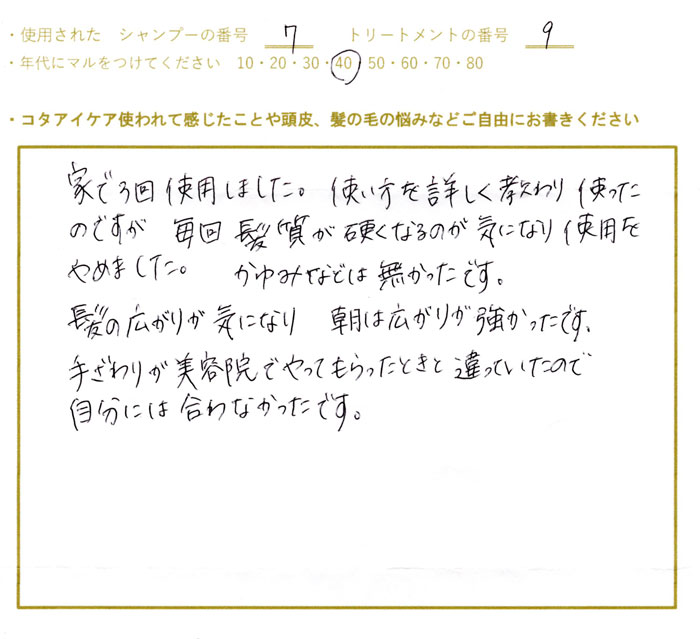 ・使用された シャンプーの番号 7 トリートメントの番号 9
・年代にマルをつけてください 10・20・30・40・50・60・70・80
・コタアイケア使われて感じたことや頭皮、髪の毛の悩みなどご自由にお書きください
家で3回使用しました。使い方を詳しく教わり使った
のですが 毎回 髪質が硬くなるのが気になり使用を
やめました。 かゆみなどは無かったです。
髪の広がりが気になり 朝は広がりが強かったです、
手ざわりが美容院でやってもらったときと違っていたので
自分には合わなかったです。